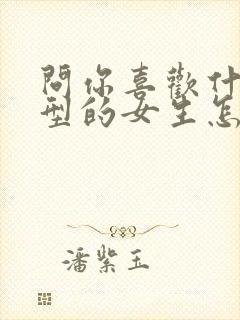 問你喜歡什
型的女生怎
潘紫玉